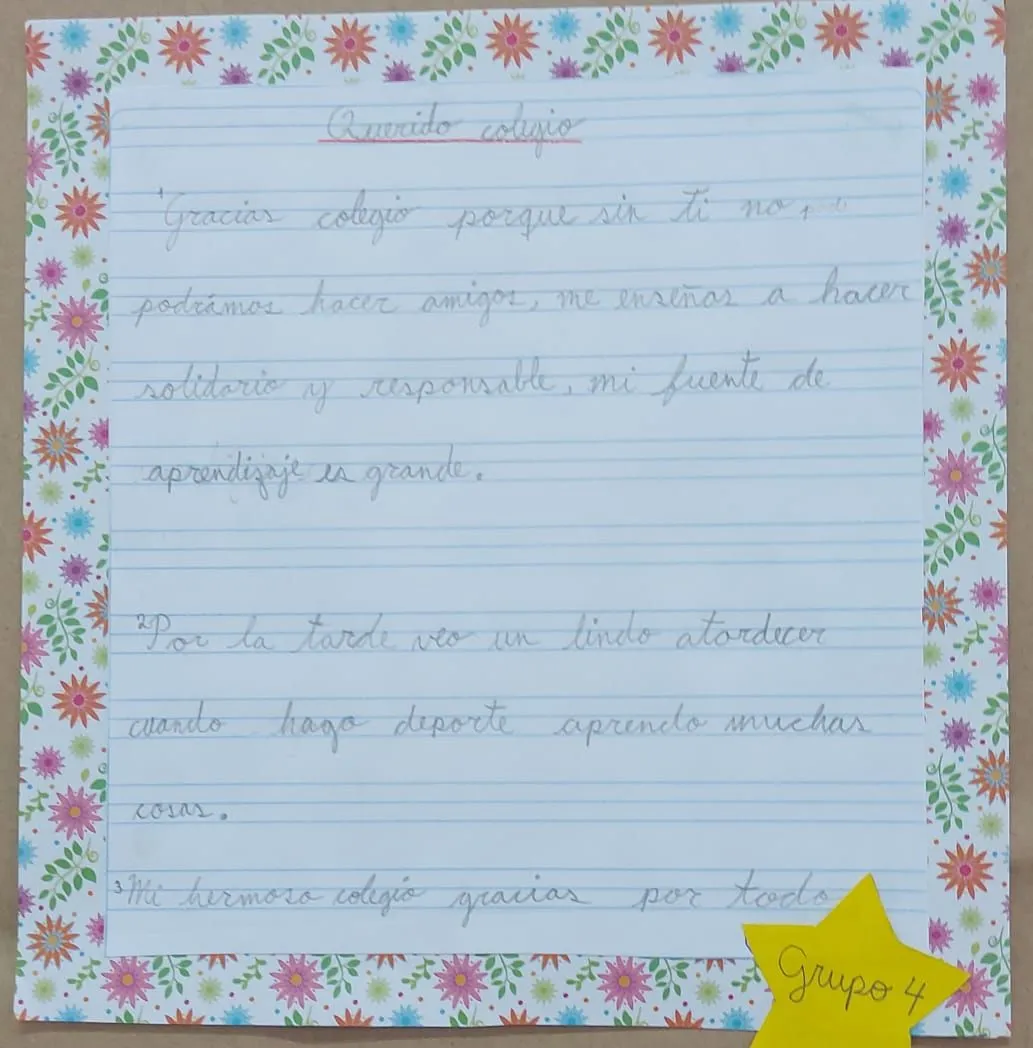 Querido colegio
1Gracias colegio porque sin ti no
podrámos hacer amigos, me enseñas a hacer
solidario y responsable, mi fuente de
aprendizaje es grande.
2Por la tarde veo un lindo atardecer
cuando hago deporte aprendo muchas
cosas.
3Mi hermoso colegio gracias por todo
Grupo 4